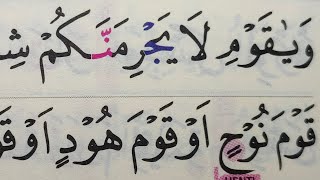 وَيٰقَوْمِ لَا يَجْرِمَنَّكُمْ شِ
قَوْمَ نُوْحٍ اَوْ قَوْمَ هُوْدٍ اَوْ قَوْ